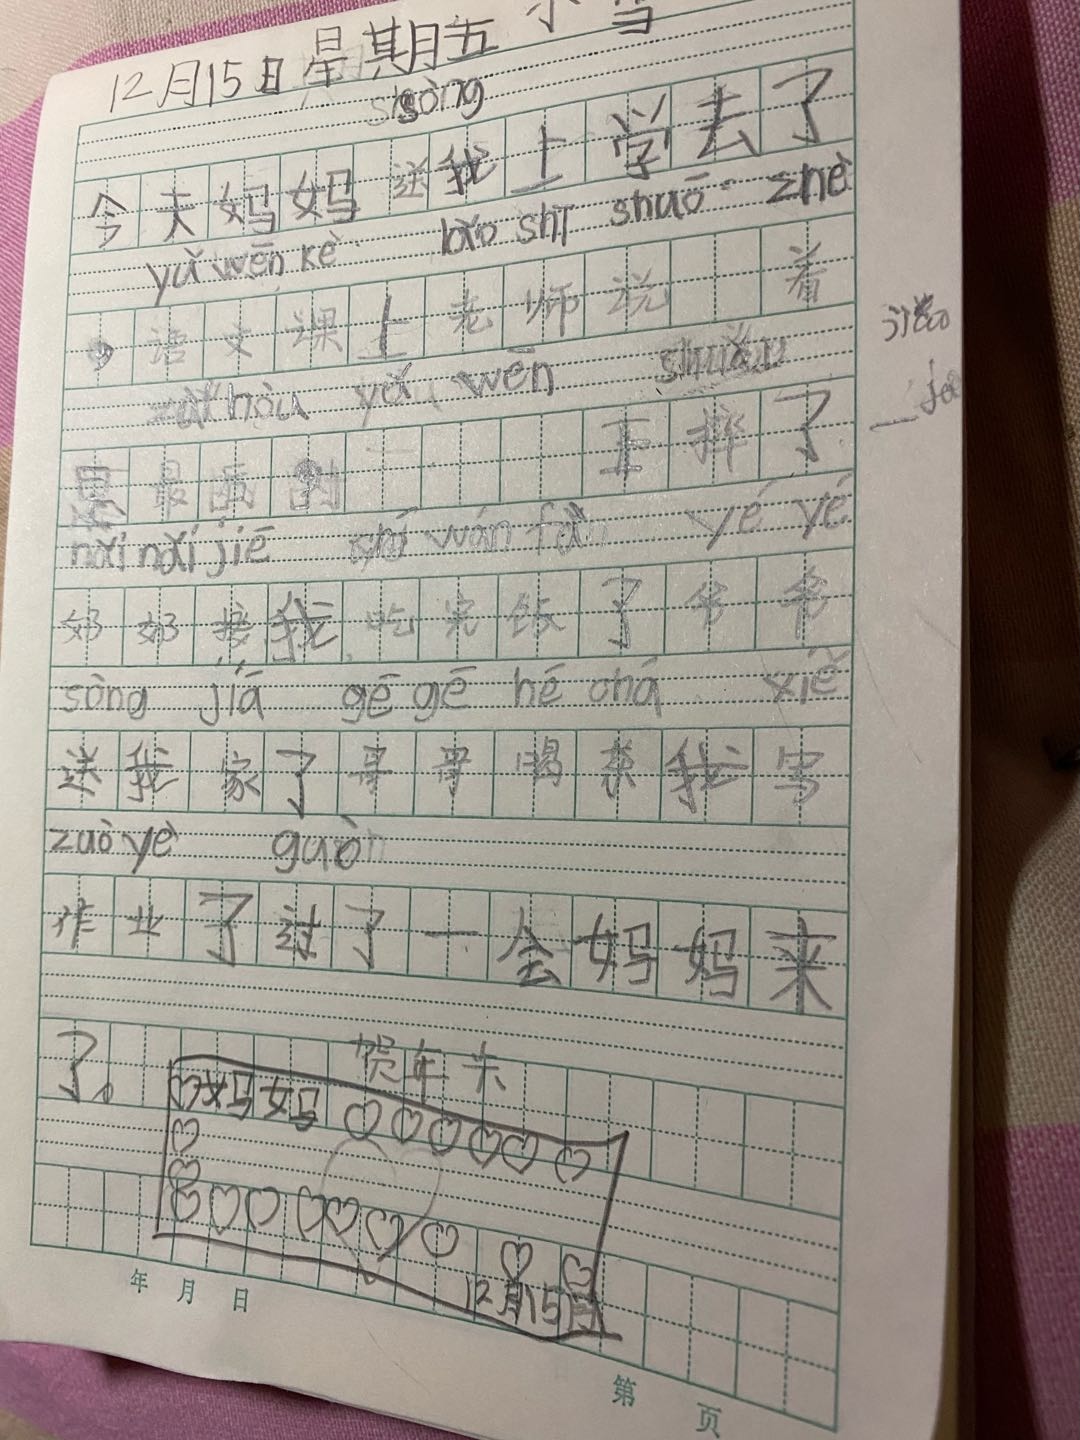 12月15日星期五 小雪
sòng
今天妈妈送我上学去了
yǔ wēn kè lǎo shī shuō zhè
语文课上老师说 着
hòu yǔ wēn
最 一 下 摔了
nǎi nǎi jiē chī wán fàn yé yé
奶奶接我吃完饭了爷爷
sòng jiā gē gē hē chá xiě
送我家了哥哥喝茶我写
zuò yè guò
作业了过了一会妈妈来
了。
贺年卡
妈妈
12月15日
年 月 日
第 页